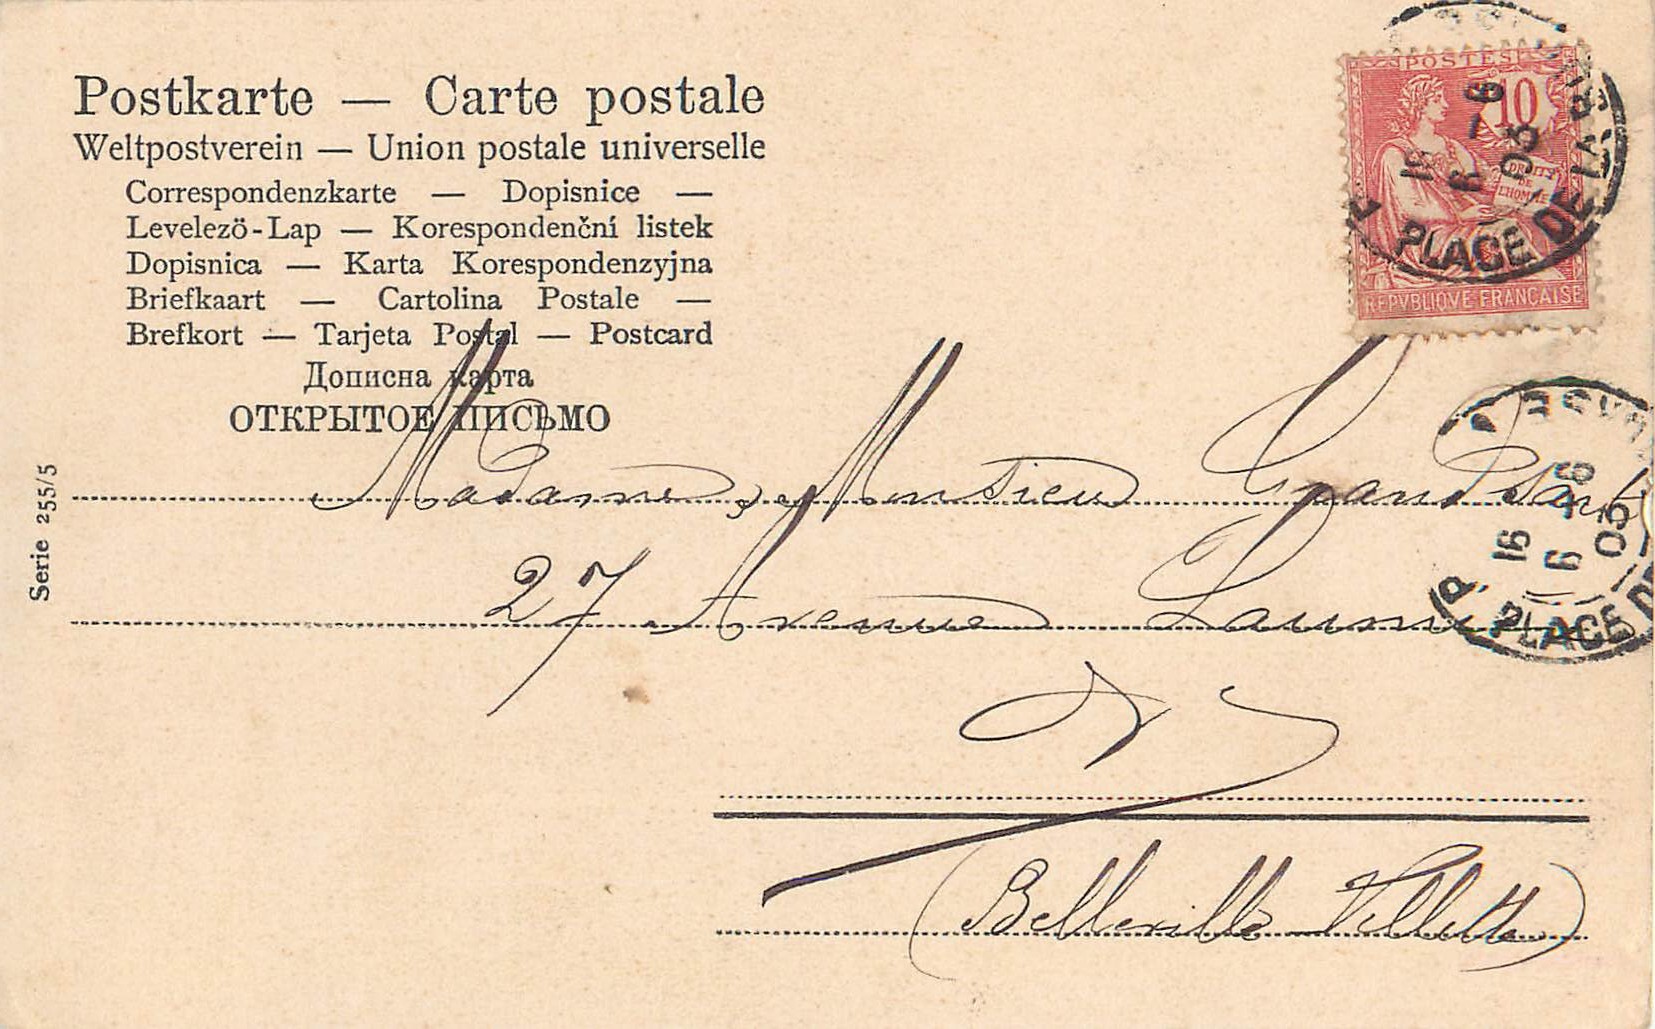 Postkarte — Carte postale
Weltpostverein — Union postale universelle
Correspondenzkarte — Dopisnice —
Levelezö-Lap — Korespondenční listek
Dopisnica — Karta Korespondenzyjna
Briefkaart — Cartolina Postale —
Brefkort — Tarjeta Postal — Postcard
Дописна карта
ОТКРЫТОЕ ПИСЬМО
Serie 255/5
POSTES
10
DROITS
DE
L'HOMME
REPVBLIQVE FRANÇAISE
PLACE DE LA B
16
6
03
Madame, Monsieur
27 Avenue
(Belleville Villette)
PLACE DE
16
6
03